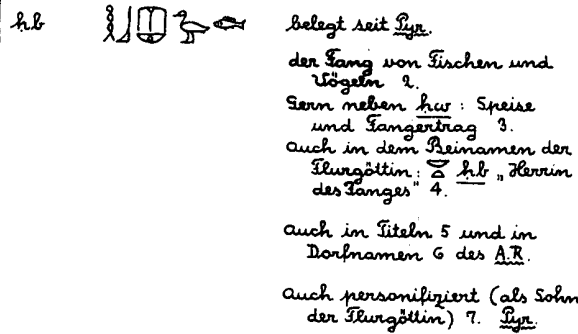 ḥb 𓎛𓃀𓎱𓅭𓆛 belegt seit Pyr.
der Fang von Fischen und
Vögeln 2.
Gern neben ḥw : Speise
und Fangertrag 3.
auch in dem Beinamen der
Flurgöttin: 𓎟𓏏 ḥb „Herrin
des Fanges" 4.
auch in Titeln 5 und in
Dorfnamen 6 des A.R.
auch personifiziert (als Sohn
der Flurgöttin) 7. Pyr.